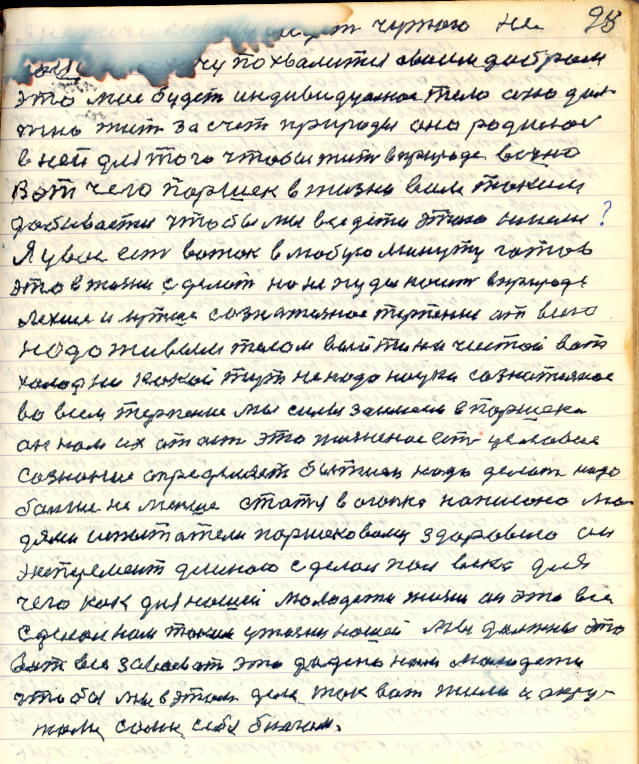 чужого не 98
хочу похвалится своим добром
это мое будет индивидуальное тело оно дол-
жно жит за счет природы оно родилось
в ней для того чтобы жит в природе вечно
Вот чего паршек в жизни всим таким
добывается чтобы мы все дети этого ?
Я уже ест в любую минуту готов
это в жизни сделат но не нуждаюсь в природе
лехше и лутше сознателное терпение от
надо живым телом выйти на чистой
холод ни какой тут не надо наука сознателное
во всем терпение мы силы займем в паршека
он нам их отдаст это жизненое ест
сознание определяет бытием надо делат надо
болше не менше статя в огонке написана лю
дями паршековому здоровию он
експеремент длиною сделал пол века для
чего как для нашей молодежи жизни он это все
сделал нам таким у жизни нашей мы должны это
вот все завоеват это дадено нам молодежи
чтобы мы в этом деле так вот жили и окру-
жали само себя